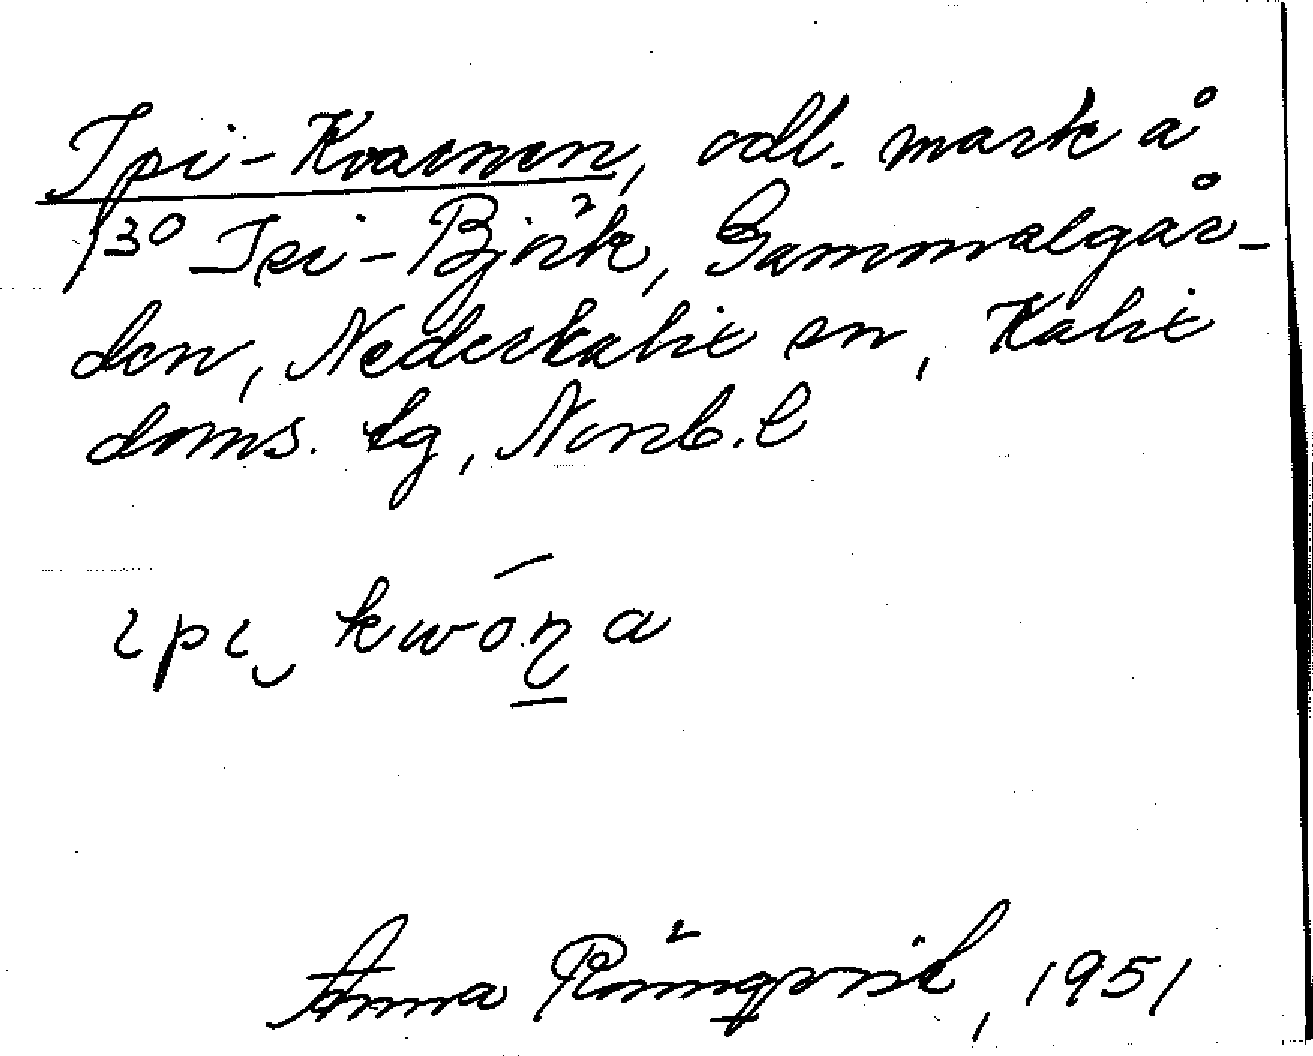 Ipi-Kvarnen, odl. mark å
13⁰ Ipi-Björk, Gammelgår-
den, Nederkalix sn, Kalix
doms. lg, Norrb. l
ipi kwóṇa
Anna Rönnqvist, 1951